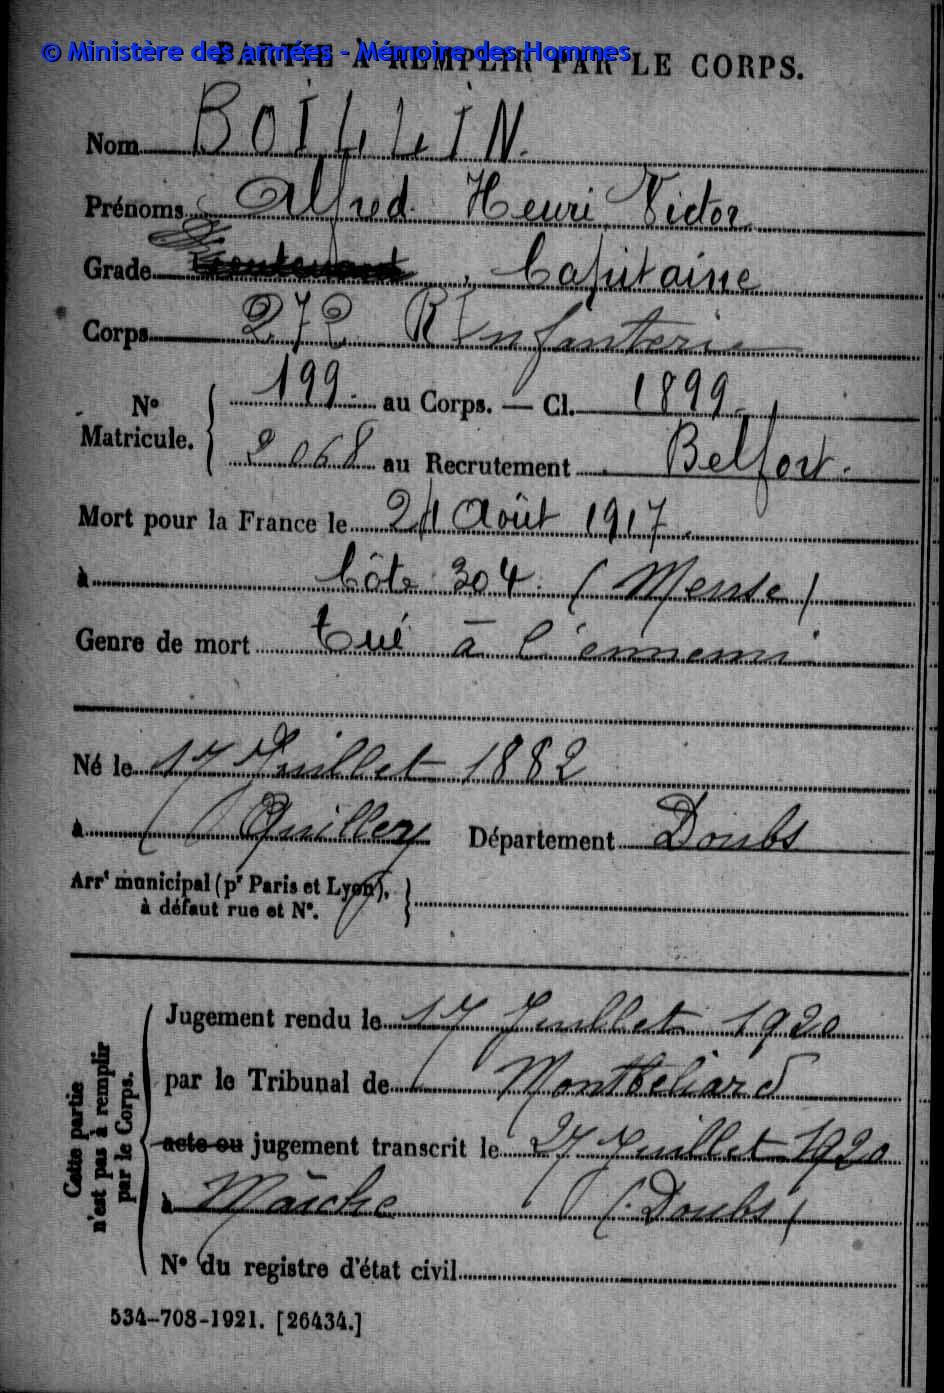 © Ministère des armées - Mémoire des Hommes
PARTIE À REMPLIR PAR LE CORPS.
Nom BOILLIN.
Prénoms Alfred Henri Victor
Grade Lieutenant, Capitaine
Corps 272 R Infanterie
N° Matricule. 199. au Corps. — Cl. 1899.
2068 au Recrutement Belfort.
Mort pour la France le 24 Août 1917.
à Côte 304 (Meuse)
Genre de mort tué à l'ennemi
Né le 17 Juillet 1882
à Département Doubs
Arrt municipal (pr Paris et Lyon),
à défaut rue et N°.
Cette partie n'est pas à remplir par le Corps.
Jugement rendu le 17 Juillet 1920
par le Tribunal de Montbéliard
acte ou jugement transcrit le 27 Juillet 1920
à Maîche (Doubs)
N° du registre d'état civil
534-708-1921. [26434.]